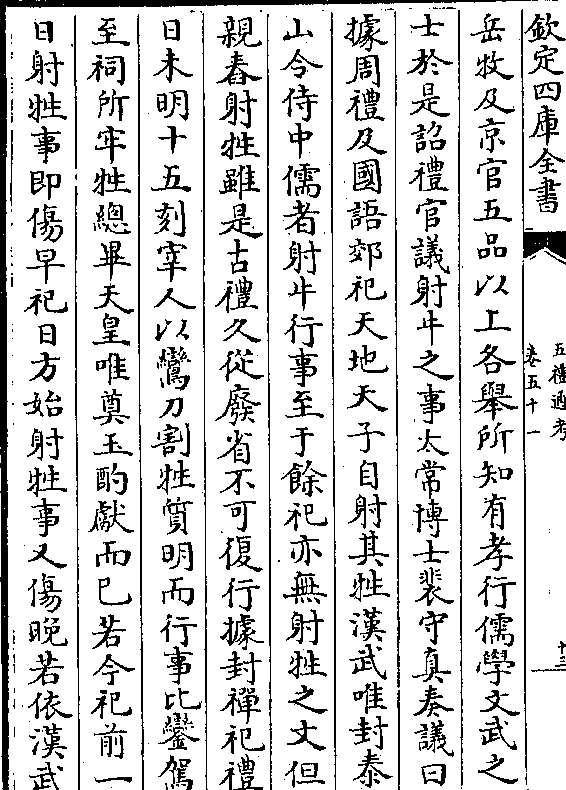 欽定四庫全書
五禮通考
卷五十一
十三
岳牧及京官五品以上各舉所知有孝行儒學文武之
士於是詔禮官議射牛之事太常博士裴守真奏議曰
據周禮及國語郊祀天地天子自射其牲漢武唯封泰
山令侍中儒者射牛行事至于餘祀亦無射牲之文但
親舂射牲雖是古禮久從廢省不可復行據封禪祀禮
日未明十五刻宰人以鸞刀割牲質明而行事比鑾駕
至祠所牢牲總畢天皇唯奠玉酌獻而已若今祀前一
日射牲事即傷早祀日方始射牲事又傷晚若依漢武